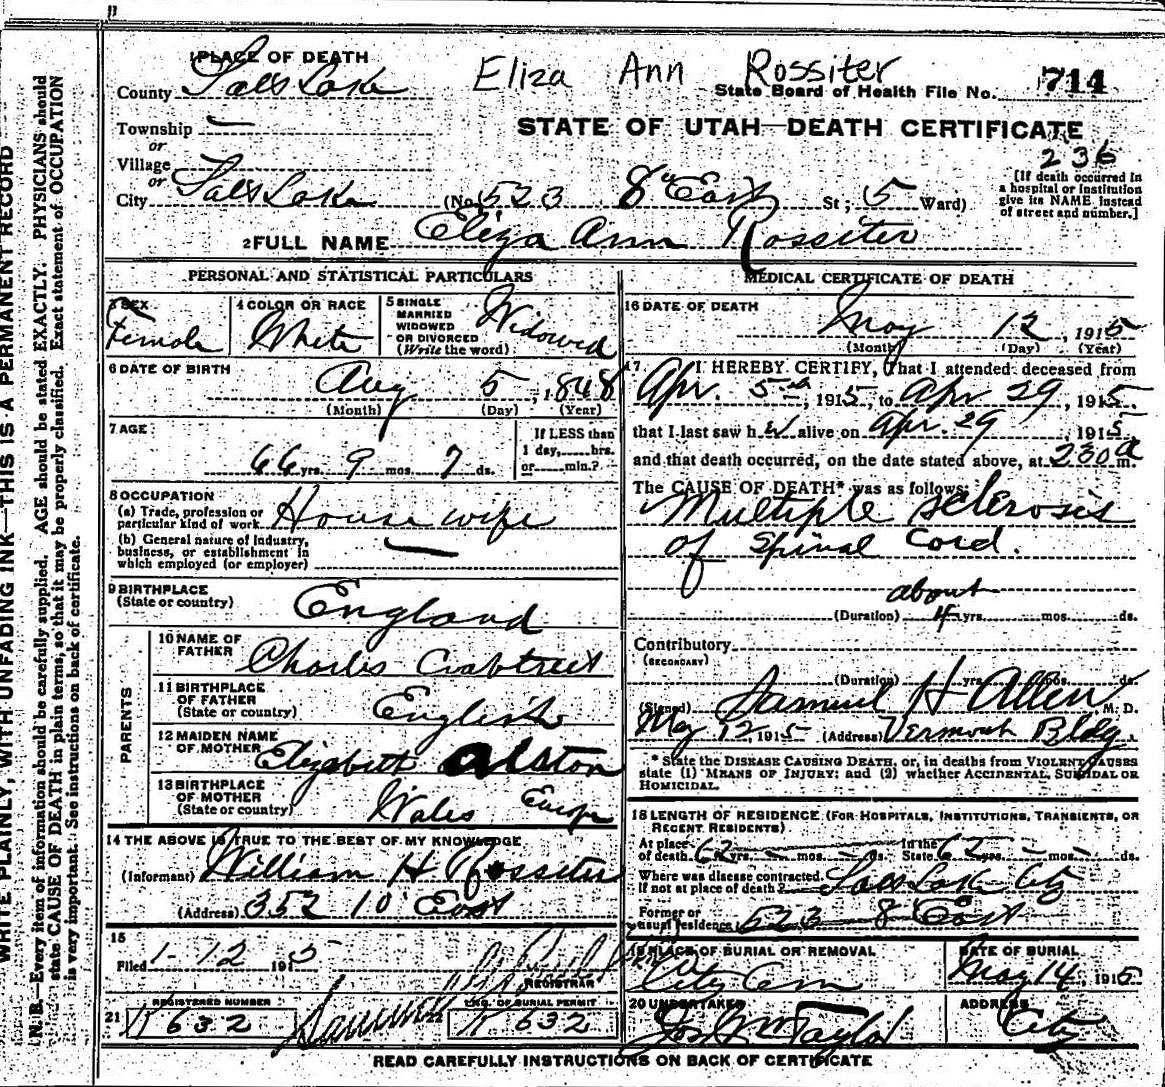 Eliza Ann Rossiter
1 PLACE OF DEATH
County Salt Lake
State Board of Health File No. 714
Township —
or
Village —
or
City Salt Lake (No. 523 8th East St; 5 Ward)
STATE OF UTAH—DEATH CERTIFICATE
236
[If death occurred in
a hospital or institution
give its NAME instead
of street and number.]
2 FULL NAME Eliza Ann Rossiter
PERSONAL AND STATISTICAL PARTICULARS
3 SEX
Female
4 COLOR OR RACE
White
5 SINGLE
MARRIED
WIDOWED
OR DIVORCED
(Write the word)
Widowed
6 DATE OF BIRTH
Aug 5, 1848
(Month) (Day) (Year)
7 AGE
66 yrs. 9 mos. 7 ds.
If LESS than
1 day, hrs.
or min.?
8 OCCUPATION
(a) Trade, profession or
particular kind of work House wife
(b) General nature of Industry,
business, or establishment in
which employed (or employer) —
9 BIRTHPLACE
(State or country) England
PARENTS
10 NAME OF
FATHER Charles Crabtree
11 BIRTHPLACE
OF FATHER
(State or country) English
12 MAIDEN NAME
OF MOTHER Elizabeth Alston
13 BIRTHPLACE
OF MOTHER
(State or country) Wales Europe
14 THE ABOVE IS TRUE TO THE BEST OF MY KNOWLEDGE
(Informant) William H Rossiter
(Address) 352 10 East
15
Filed 1-12 1915
REGISTRAR
21
REGISTERED NUMBER
K 632
NO. OF BURIAL PERMIT
K 632
MEDICAL CERTIFICATE OF DEATH
16 DATE OF DEATH
May 12, 1915
(Month) (Day) (Year)
17 I HEREBY CERTIFY, That I attended deceased from
Apr. 5th, 1915, to Apr 29, 1915.
that I last saw her alive on Apr. 29 1915
and that death occurred, on the date stated above, at 230 a m.
The CAUSE OF DEATH* was as follows:
Multiple Sclerosis
of Spinal Cord.
about
(Duration) 4 yrs. mos. ds.
Contributory
(SECONDARY)
(Duration) yrs. mos. ds.
(Signed) Samuel H Allen M. D.
May 12 1915 (Address) Vermont Bldg.
* State the DISEASE CAUSING DEATH, or, in deaths from VIOLENT CAUSES
state (1) MEANS OF INJURY; and (2) whether ACCIDENTAL, SUICIDAL OR
HOMICIDAL.
18 LENGTH OF RESIDENCE (FOR HOSPITALS, INSTITUTIONS, TRANSIENTS, OR
RECENT RESIDENTS)
At place
of death 62 yrs. — mos. — ds. In the State 62 yrs. — mos. — ds.
Where was disease contracted,
If not at place of death? Salt Lake City
Former or
usual residence 523 8 East
19 PLACE OF BURIAL OR REMOVAL
City Cem
DATE OF BURIAL
May 14, 1915
20 UNDERTAKER
Jos Wm Taylor
ADDRESS
City
READ CAREFULLY INSTRUCTIONS ON BACK OF CERTIFICATE
WRITE PLAINLY, WITH UNFADING INK—THIS IS A PERMANENT RECORD
N. B.—Every item of information should be carefully supplied. AGE should be stated EXACTLY. PHYSICIANS should
state CAUSE OF DEATH in plain terms, so that it may be properly classified. Exact statement of OCCUPATION
is very important. See instructions on back of certificate.